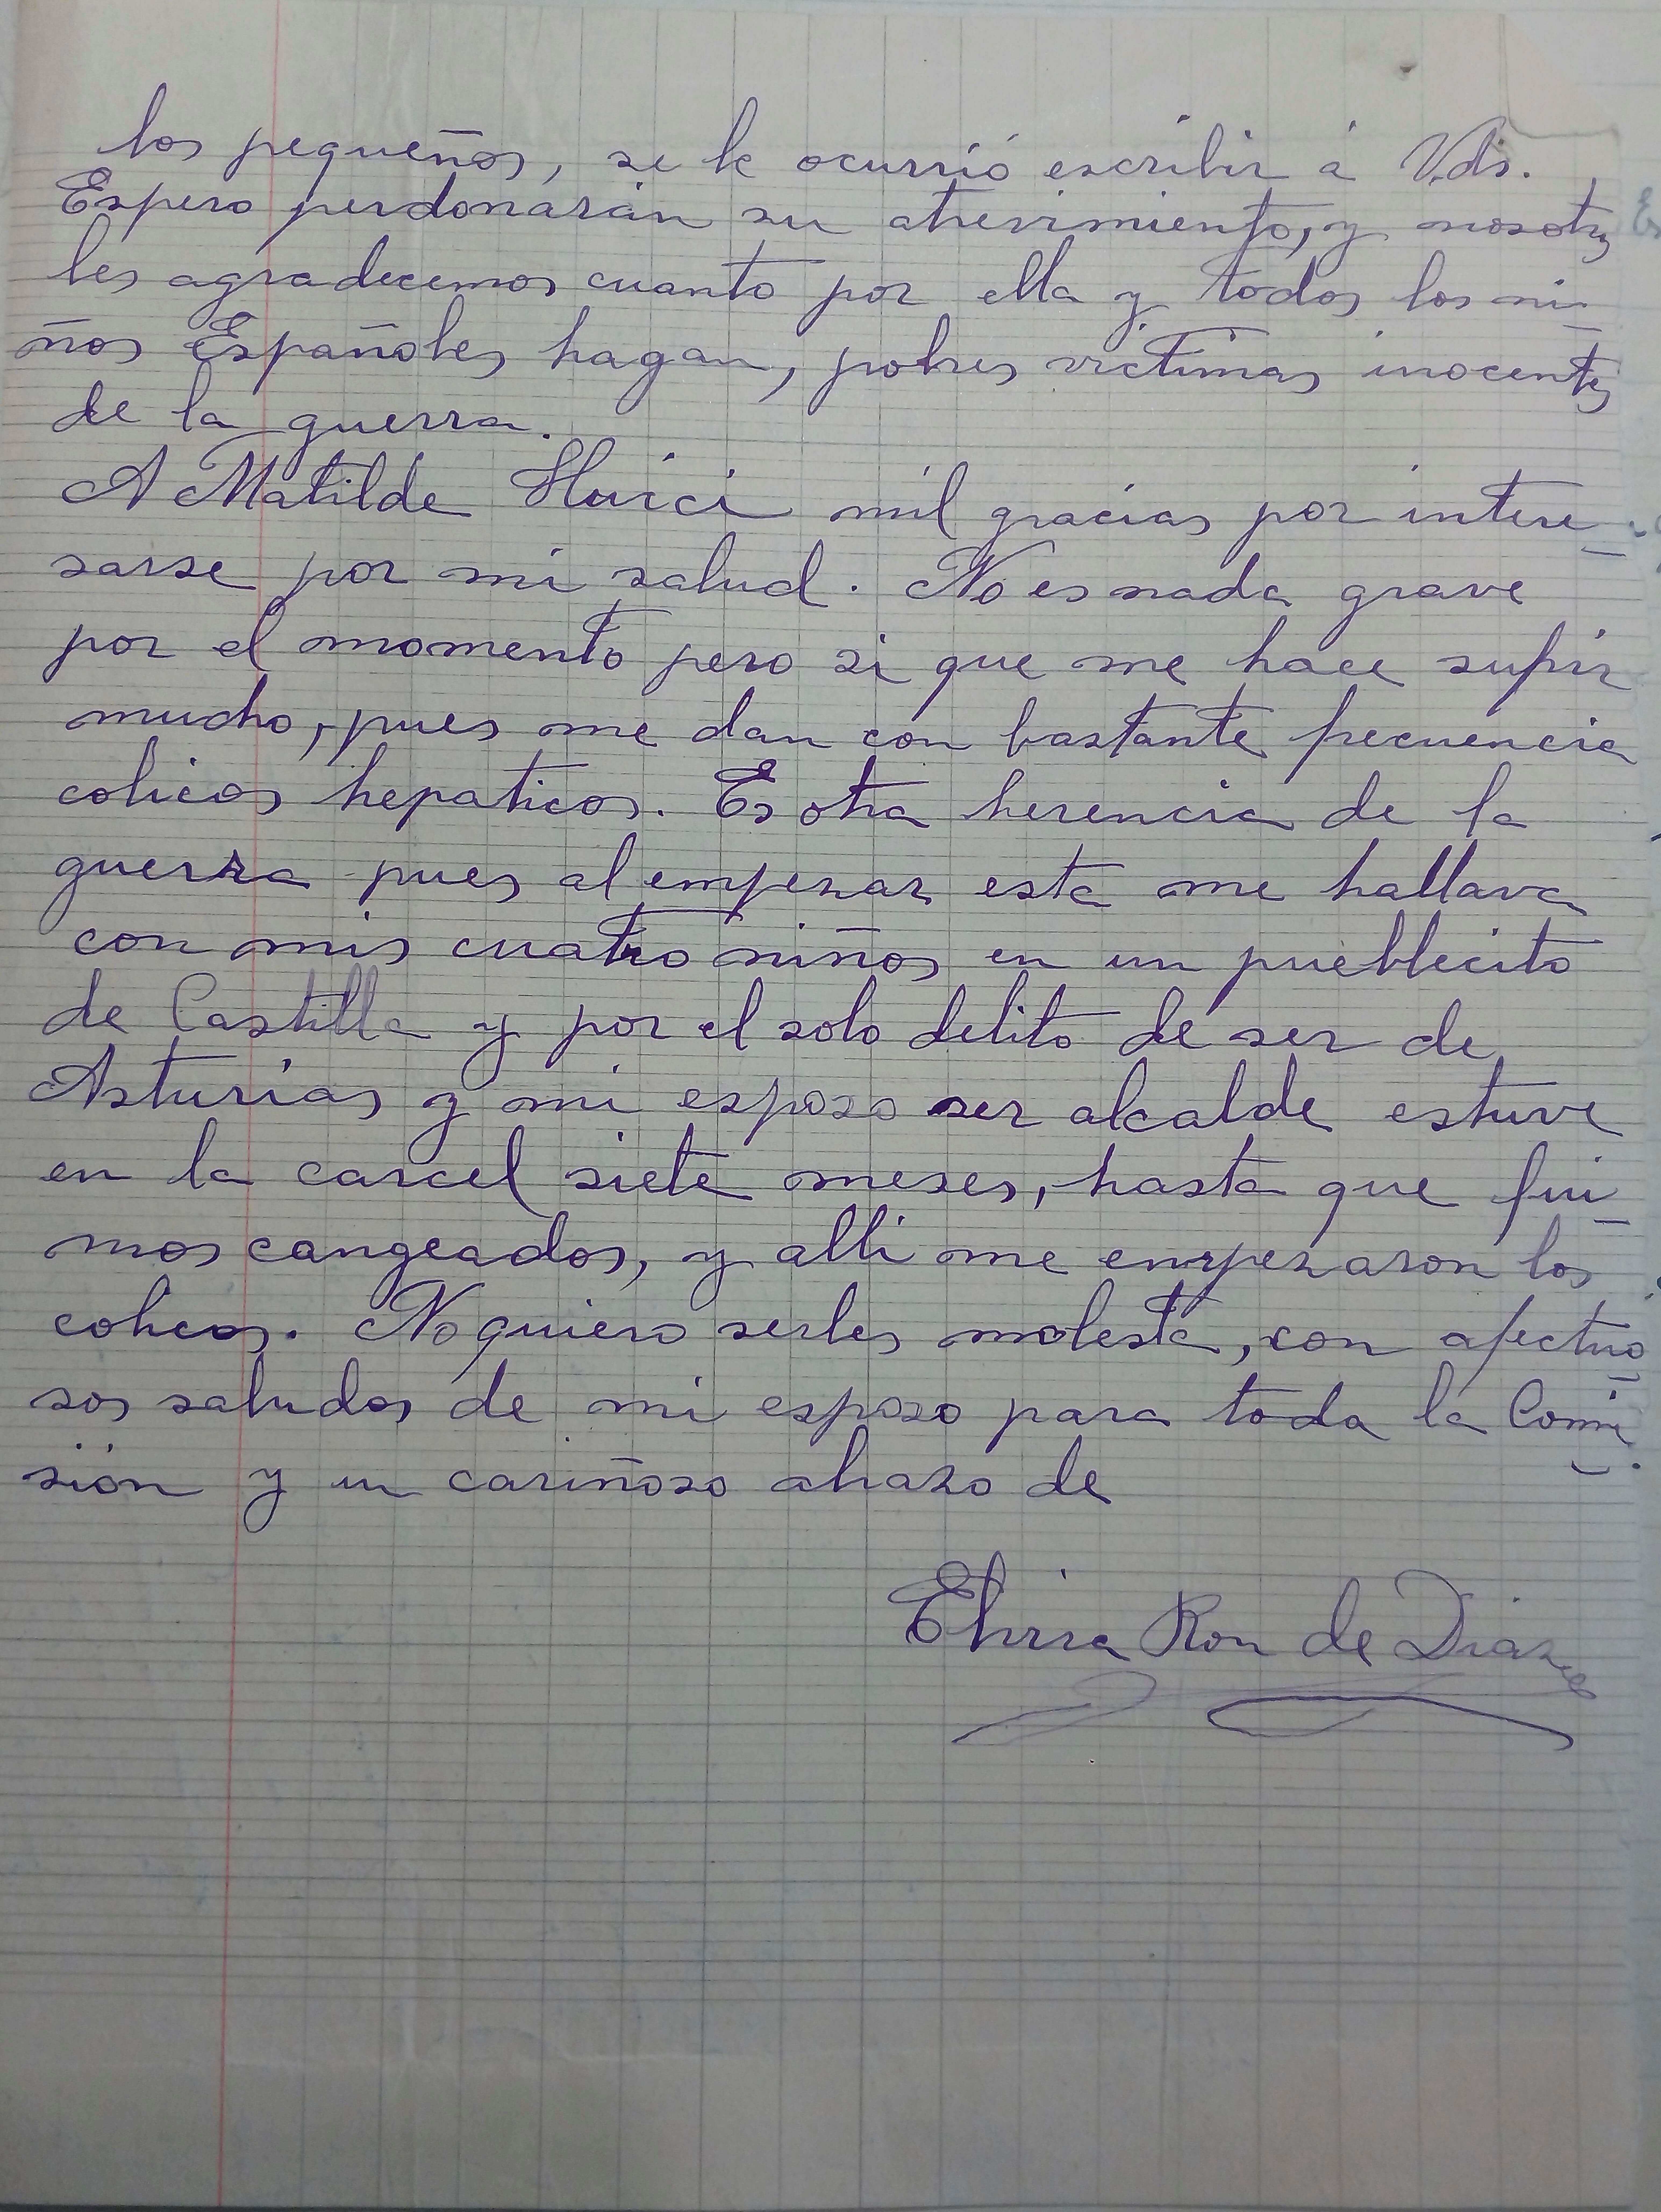 los pequeños, se le ocurrió escribir á Vds.
Espero perdonarán su atrevimiento, y nosotros
les agradecemos cuanto por ella y todos los ni-
ños Españoles hagan, pobres victimas inocentes
de la guerra.
A Matilde Huici mil gracias por intere-
sarse por mi salud. No es nada grave
por el momento pero si que me hace sufrir
mucho, pues me dan con bastante frecuencia
colicos hepaticos. Es otra herencia de la
guerra pues al empezar esta me hallava
con mis cuatro niños en un pueblecito
de Castilla y por el solo delito de ser de
Asturias y mi esposo ser alcalde estuve
en la carcel siete meses, hasta que fui-
mos cangeados, y alli me empezaron los
colicos. No quiero serles molesta, con afectuo-
sos saludos de mi esposo para toda la Comi-
sión y un cariñoso abrazo de
Elvira Ron de Diaz